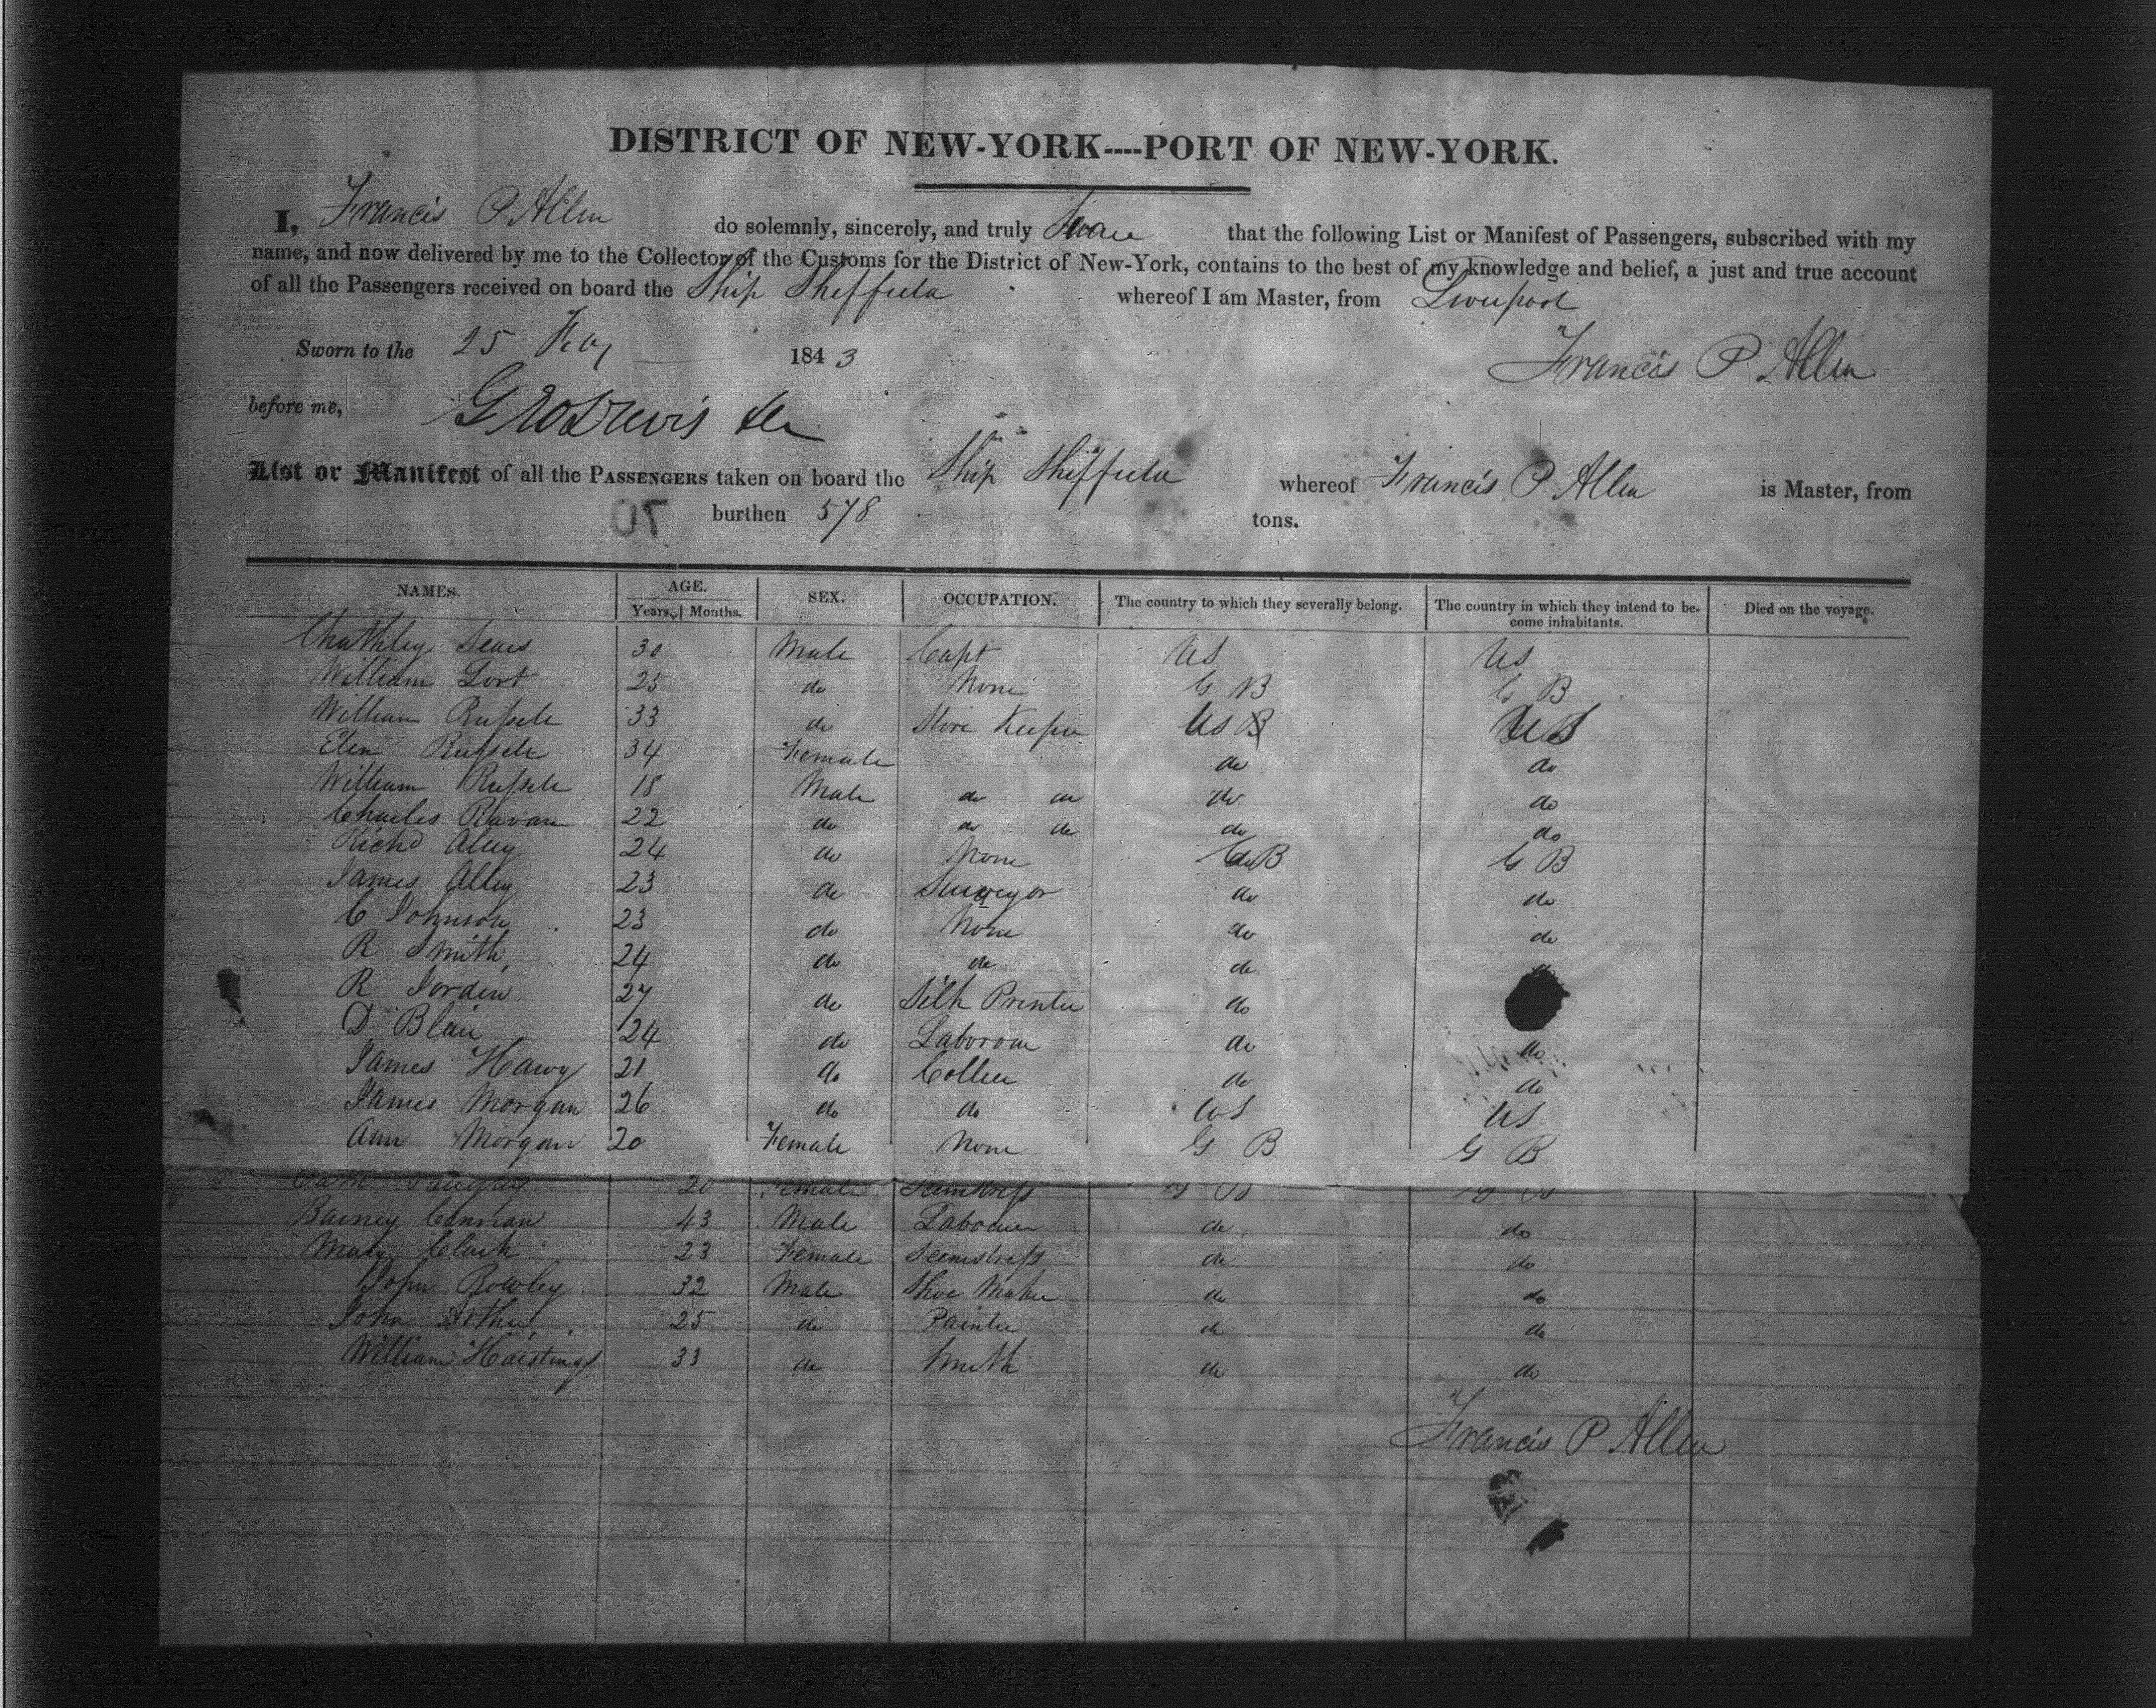 DISTRICT OF NEW-YORK----PORT OF NEW-YORK.
I, Francis P Allen do solemnly, sincerely, and truly that the following List or Manifest of Passengers, subscribed with my
name, and now delivered by me to the Collector of the Customs for the District of New-York, contains to the best of my knowledge and belief, a just and true account
of all the Passengers received on board the Ship Sheffield whereof I am Master, from Liverpool
Sworn to the 25 184 3 Francis P Allen
before me,
List or Manifest of all the PASSENGERS taken on board the Ship Sheffield whereof Francis P Allen is Master, from
70 burthen 578 tons.
NAMES. AGE. SEX. OCCUPATION. The country to which they severally belong. The country in which they intend to be- Died on the voyage.
Years. Months. come inhabitants.
Sears 30 Male Capt US US
William 25 do None G B G B
William Russell 33 do Store Keeper US US
Elen Russell 34 Female do do
William Russell 18 Male do do do do
Charles 22 do do do do do
Richd Alley 24 do None G B G B
James Alley 23 do Surveyor do do
C Johnson 23 do None do do
R Smith 24 do do do
R Jorden 27 do Silk Printer do
D Blair 24 do do do
James 21 do Collier do do
James Morgan 26 do do US US
Ann Morgan 20 Female None G B G B
20 Female Seemstress G B G B
Barney 43 Male Labourer do do
Mary Clark 23 Female Seemstress do do
John Rowley 32 Male Shoe Maker do do
John Arthur 25 do Painter do do
William Haistings 33 do Smith do do
Francis P Allen